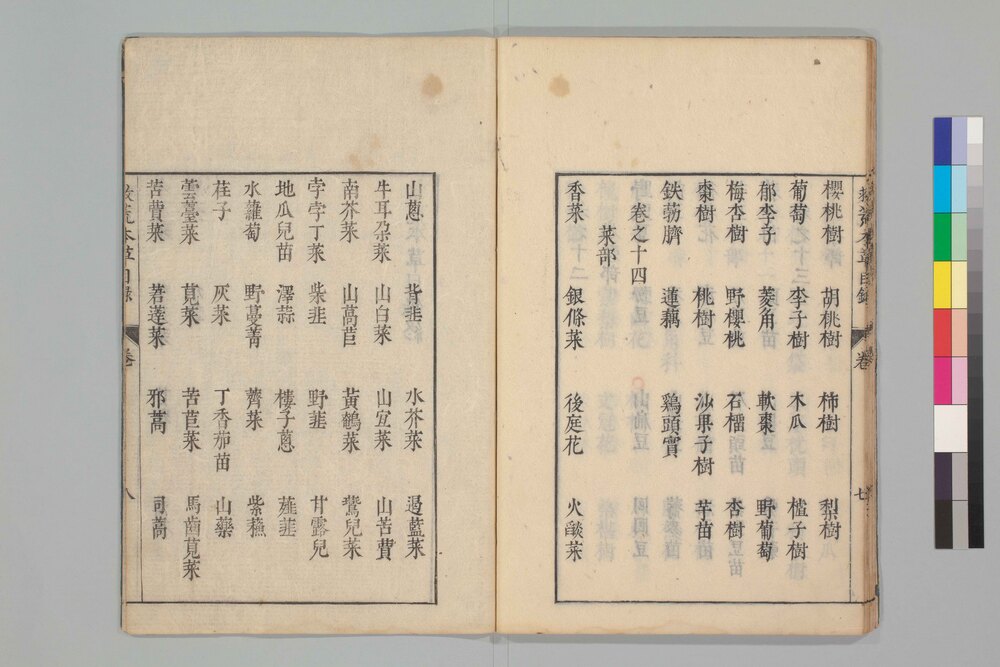 櫻桃樹 胡桃樹 柿樹 梨樹
葡萄 李子樹 木瓜 樝子樹
郁李子 菱角 軟棗 野葡萄
梅杏樹 野櫻桃 石榴 杏樹
棗樹 桃樹 沙果子樹 芋苗
鉄葧臍 蓮藕 鶏頭實
卷之十四
菜部
香菜 銀條菜 後庭花 火燄菜
山葱 背韭 水芥菜 遏藍菜
牛耳朶菜 山白菜 山宜菜 山苦蕒
南芥菜 山萵苣 黃鵪菜 鷰兒菜
孛孛丁菜 柴韭 野韭 甘露兒
地瓜兒苗 澤蒜 樓子葱 薤韭
水蘿蔔 野蔓菁 薺菜 紫蘇
荏子 灰菜 丁香茄苗 山藥
雲薹菜 莧菜 苦苣菜 馬齒莧菜
苦蕒菜 莙薘菜 邪蒿 同蒿
救荒本草目錄 卷 八